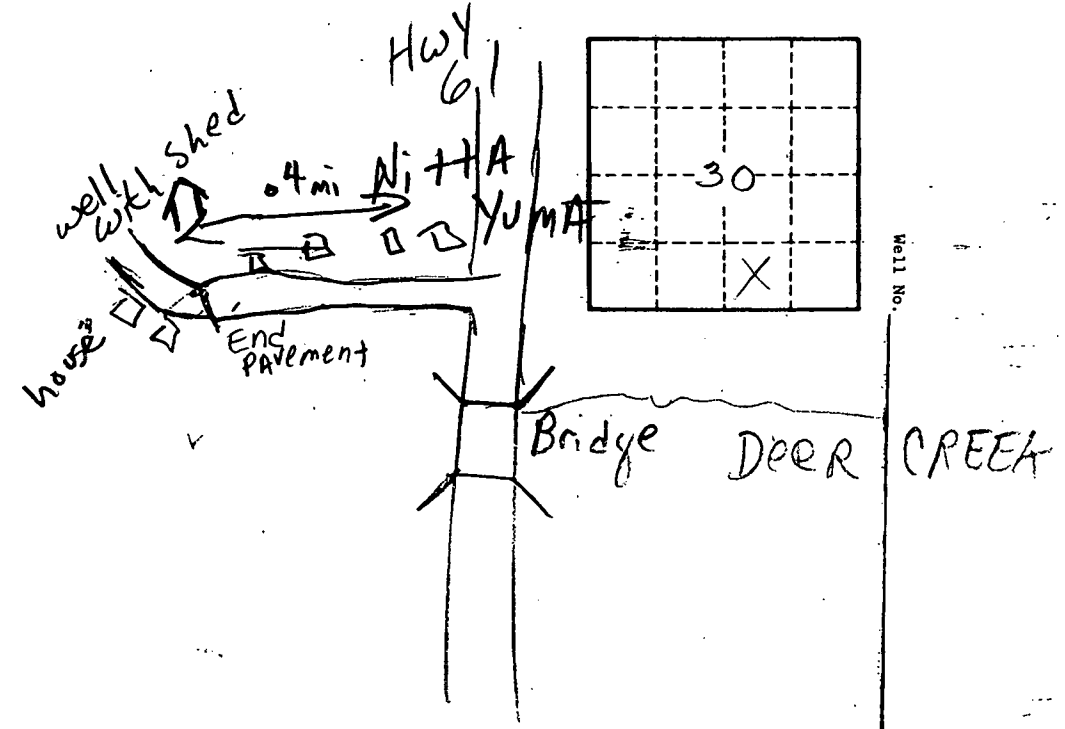 HwY
61
well
with shed
.4 mi
Nitta
Yuma
30
X
Well No.
houses
End
PAvement
Bridge
DeeR CREEK